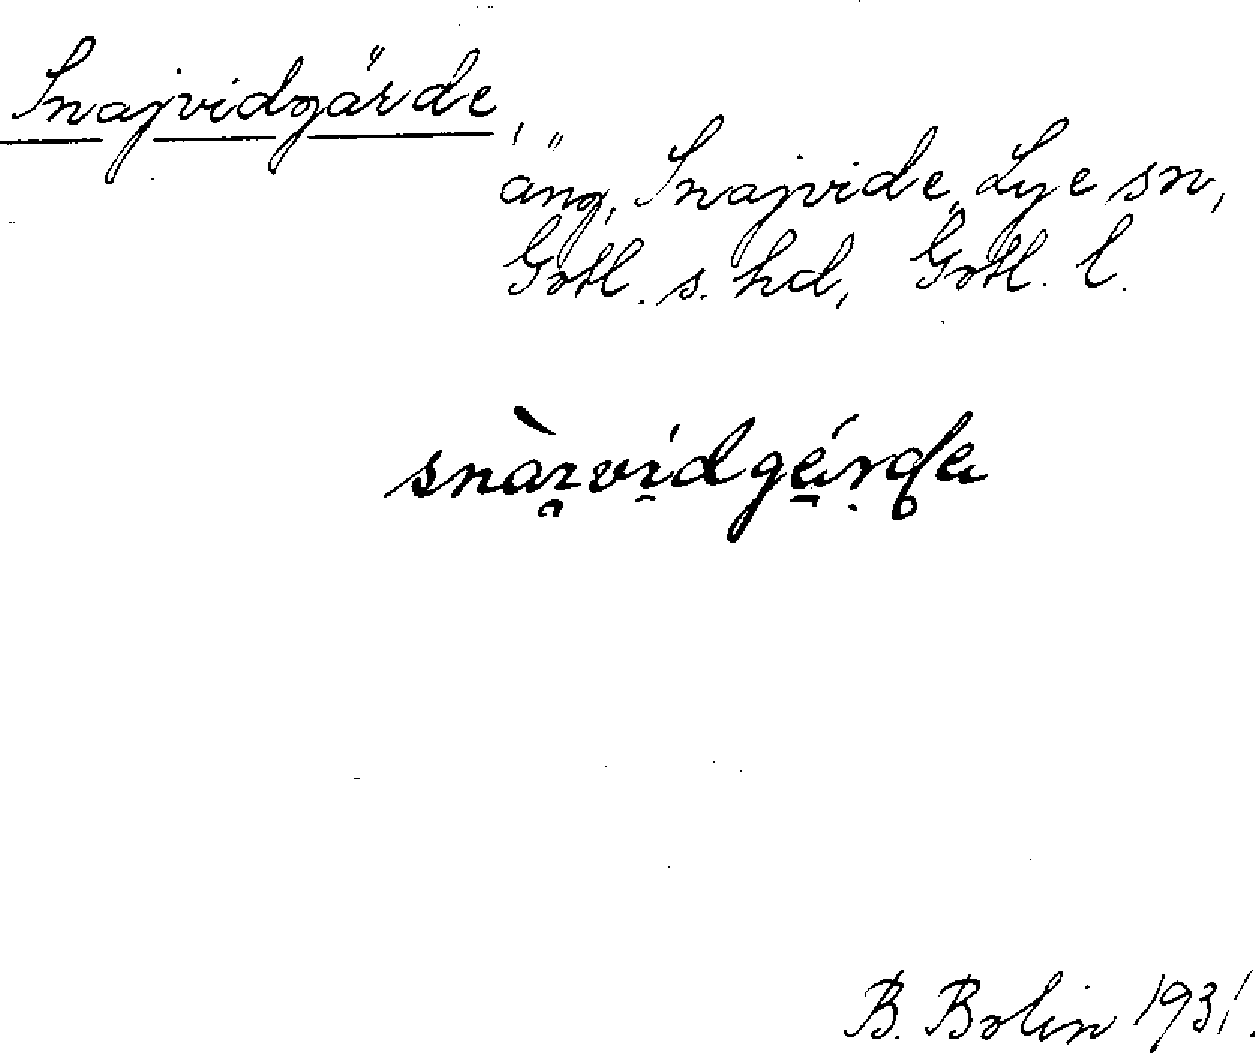 Snajvidgärde,
äng, Snajvide, Lye sn,
Gotl. s. hd, Gotl. l.
snài̯vi̠dgä́rda
B. Bolin 1931.